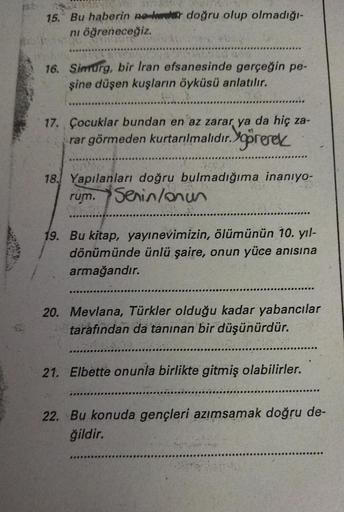 15. Bu haberin ne kadar doğru olup olmadığı-
nı öğreneceğiz.
16. Simurg, bir İran efsanesinde gerçeğin pe-
şine düşen kuşların öyküsü anlatılır.
17. Çocuklar bundan en az zarar ya da hiç za-
rar görmeden kurtarılmalıdır. görerek
18. Yapılanları doğru bulmadığıma inanıyo-
rum. Senin/onun
19. Bu kitap, yayınevimizin, ölümünün 10. yıl-
dönümünde ünlü şaire, onun yüce anısına
armağandır.
20. Mevlana, Türkler olduğu kadar yabancılar
tarafından da tanınan bir düşünürdür.
21. Elbette onunla birlikte gitmiş olabilirler.
22. Bu konuda gençleri azımsamak doğru de-
ğildir.